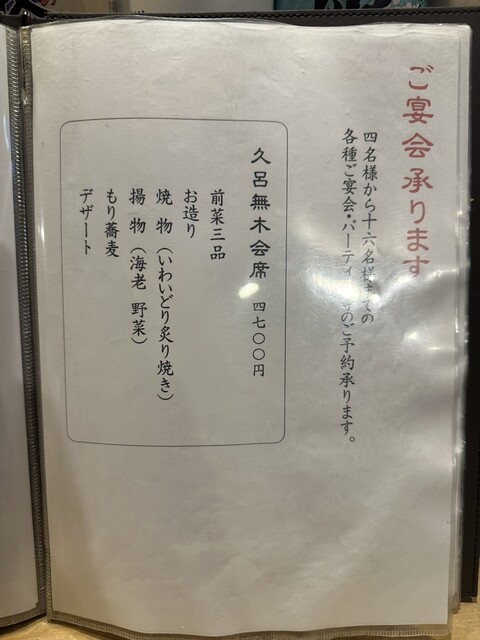 ご宴会承ります
四名様から十六名様までの
各種ご宴会・パーティ のご予約承ります。
久呂無木会席 四七〇〇円
前菜三品
お造り
焼物(いわいどり炙り焼き)
揚物(海老 野菜)
もり蕎麦
デザート